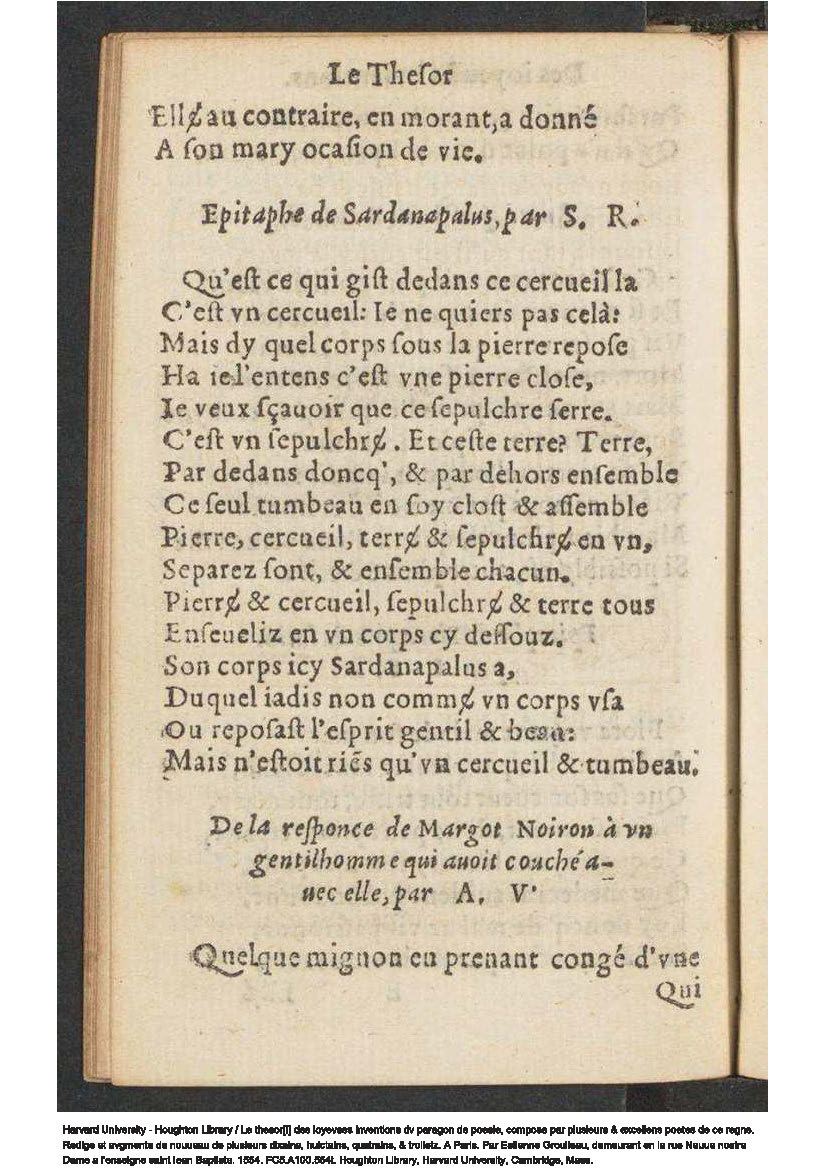 Le Theſor
Ell̷e au contraire, en morant, a donné
A ſon mary ocaſion de vie.
Epitaphe de Sardanapalus, par S. R.
Qu'eſt ce qui giſt dedans ce cercueil la
C'eſt vn cercueil: Ie ne quiers pas celà:
Mais dy quel corps ſous la pierre repoſe
Ha ie l'entens c'eſt vne pierre cloſe,
Ie veux ſçauoir que ce ſepulchre ſerre.
C'eſt vn ſepulchrɇ. Et ceſte terre? Terre,
Par dedans doncq', & par dehors enſemble
Ce ſeul tumbeau en ſoy cloſt & aſſemble
Pierre, cercueil, terrɇ & ſepulchrɇ en vn,
Separez ſont, & enſemble chacun.
Pierrɇ & cercueil, ſepulchrɇ & terre tous
Enſeueliz en vn corps cy deſſouz.
Son corps icy Sardanapalus a,
Duquel iadis non commɇ vn corps vſa
Ou repoſaſt l'eſprit gentil & beau:
Mais n'eſtoit riẽs qu'vn cercueil & tumbeau.
De la reſponce de Margot Noiron à vn
gentilhomme qui auoit couché a-
uec elle, par A. V.
Quelque mignon en prenant congé d'vne
Qui
Harvard University - Houghton Library / Le thesor[i] des ioyevses inventions dv paragon de poesie, compose par plusieurs & excellens poetes de ce regne.
Redige et avgmente de nouueau de plusieurs dixains, huictains, quatrains, & trolletz. A Paris. Par Estienne Groulleau, demeurant en la rue Neuue nostre
Dame a l'enseigne saint Iean Baptiste. 1554. FC5.A100.554t. Houghton Library, Harvard University, Cambridge, Mass.